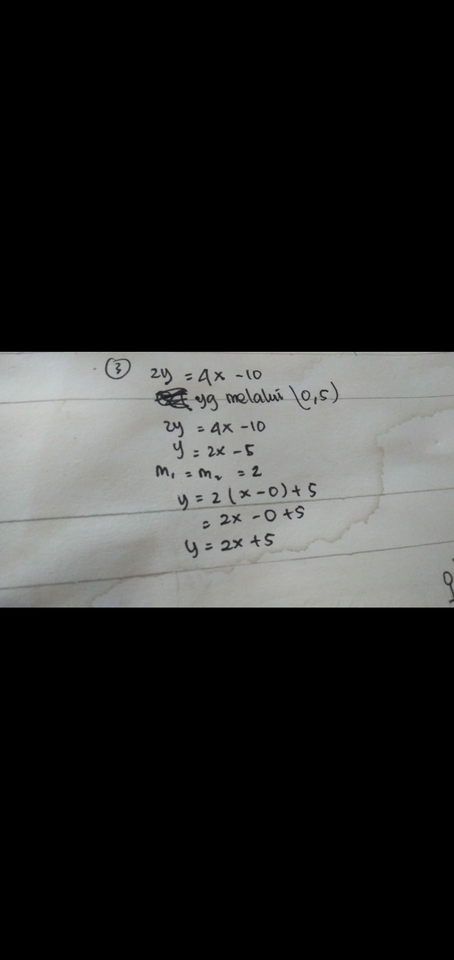 3
2y = 4x - 10
yg melalui (0,5)
2y = 4x - 10
y = 2x - 5
m₁ = m₂ = 2
y = 2(x - 0) + 5
= 2x - 0 + 5
y = 2x + 5